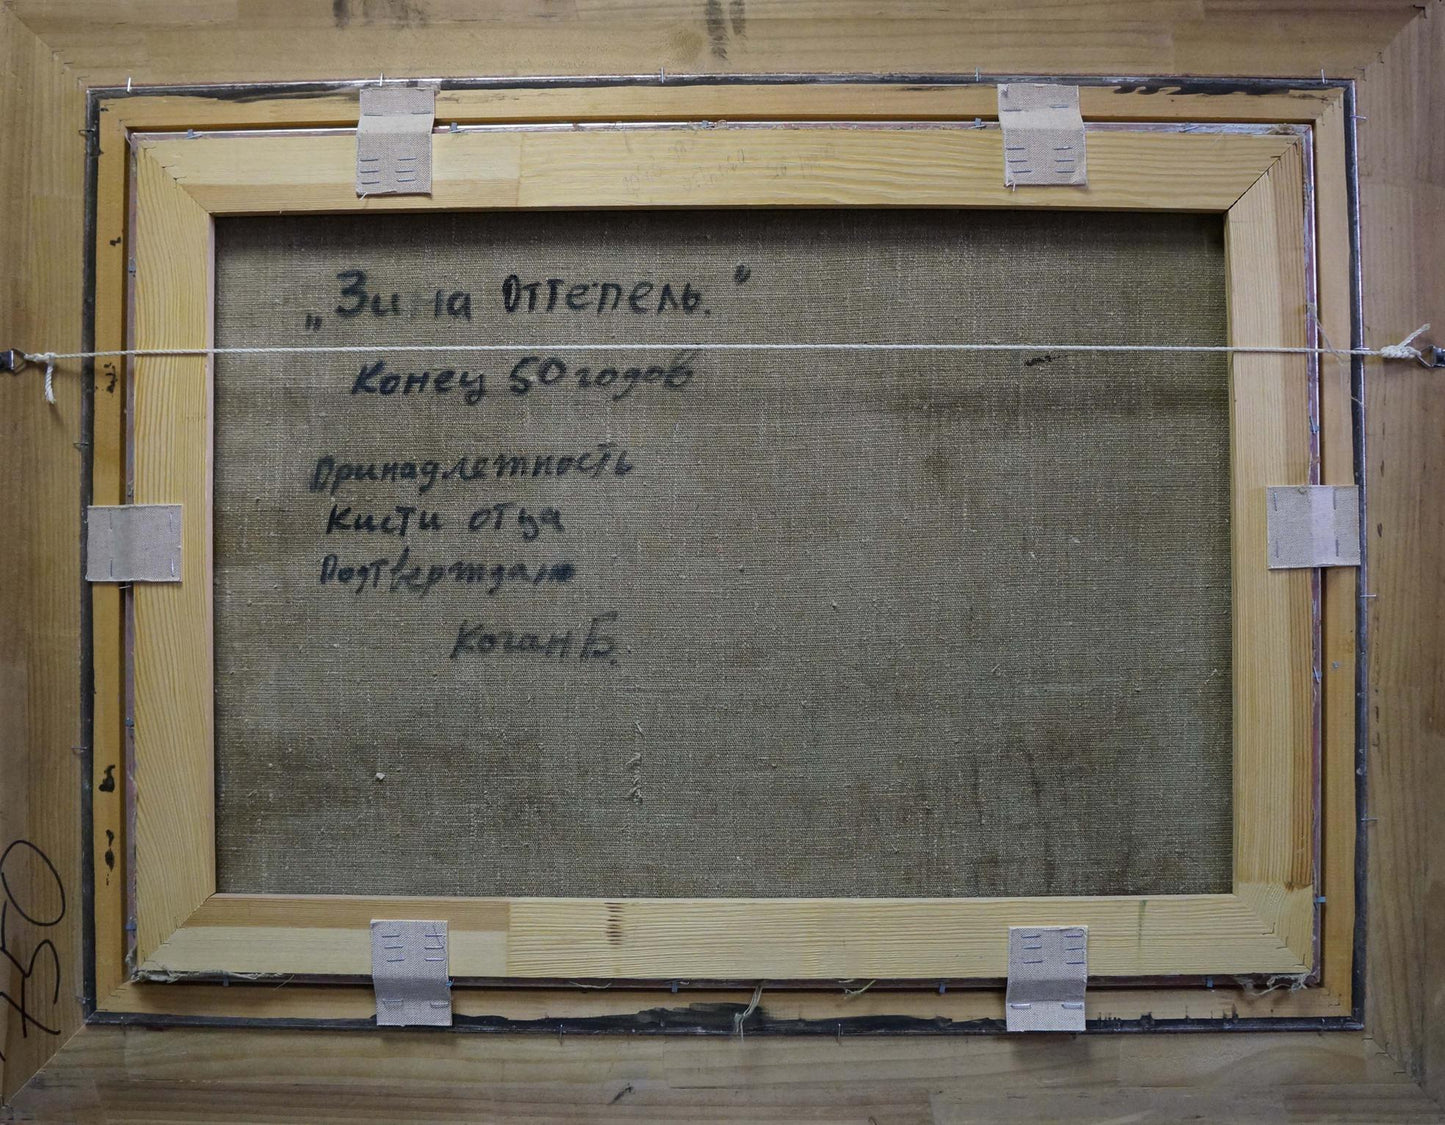 „Зима Оттепель."
Конец 50 годов
Принадлежность
Кисти отца
Подтверждаю
Коган Б.
750